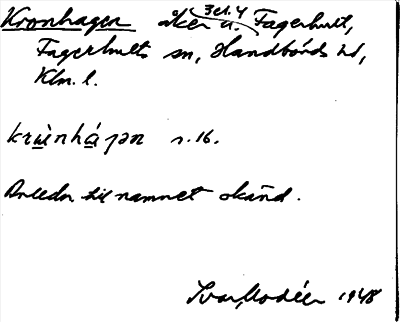 Kronhagen åker u. Fagerhult,
Fagerhults sn, Handbörds hd,
Klm. l.
krɯ̀nhágən r. 16.
Anledn till namnet okänd.
Ivar Modéer 1948